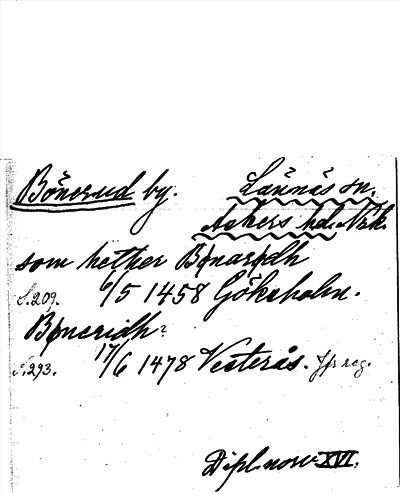 Bönerud by. Lännäs sn.
Askers hd. Närk.
som hether Bønarødh
S. 209. 6/5 1458 Göksholm.
Bøneridh?
S. 293. 17/6 1478 Vesterås. Jfr reg.
Dipl. norv. XVI.